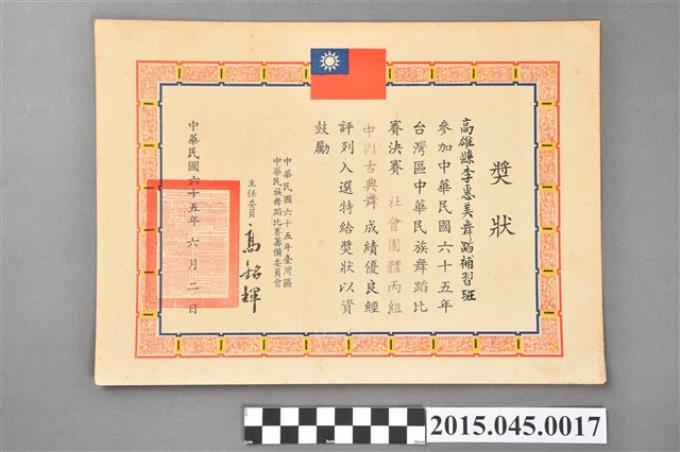 獎狀
高雄縣李惠美舞蹈補習班
參加中華民國六十五年
台灣區中華民族舞蹈比
賽決賽 社會團體丙組
中國古典舞成績優良經
評列入選特給獎狀以資
鼓勵
中華民國六十五年臺灣區
中華民族舞蹈比賽籌備委員會
主任委員 高銘輝
中華民國六十五年六月二日
2015.045.0017